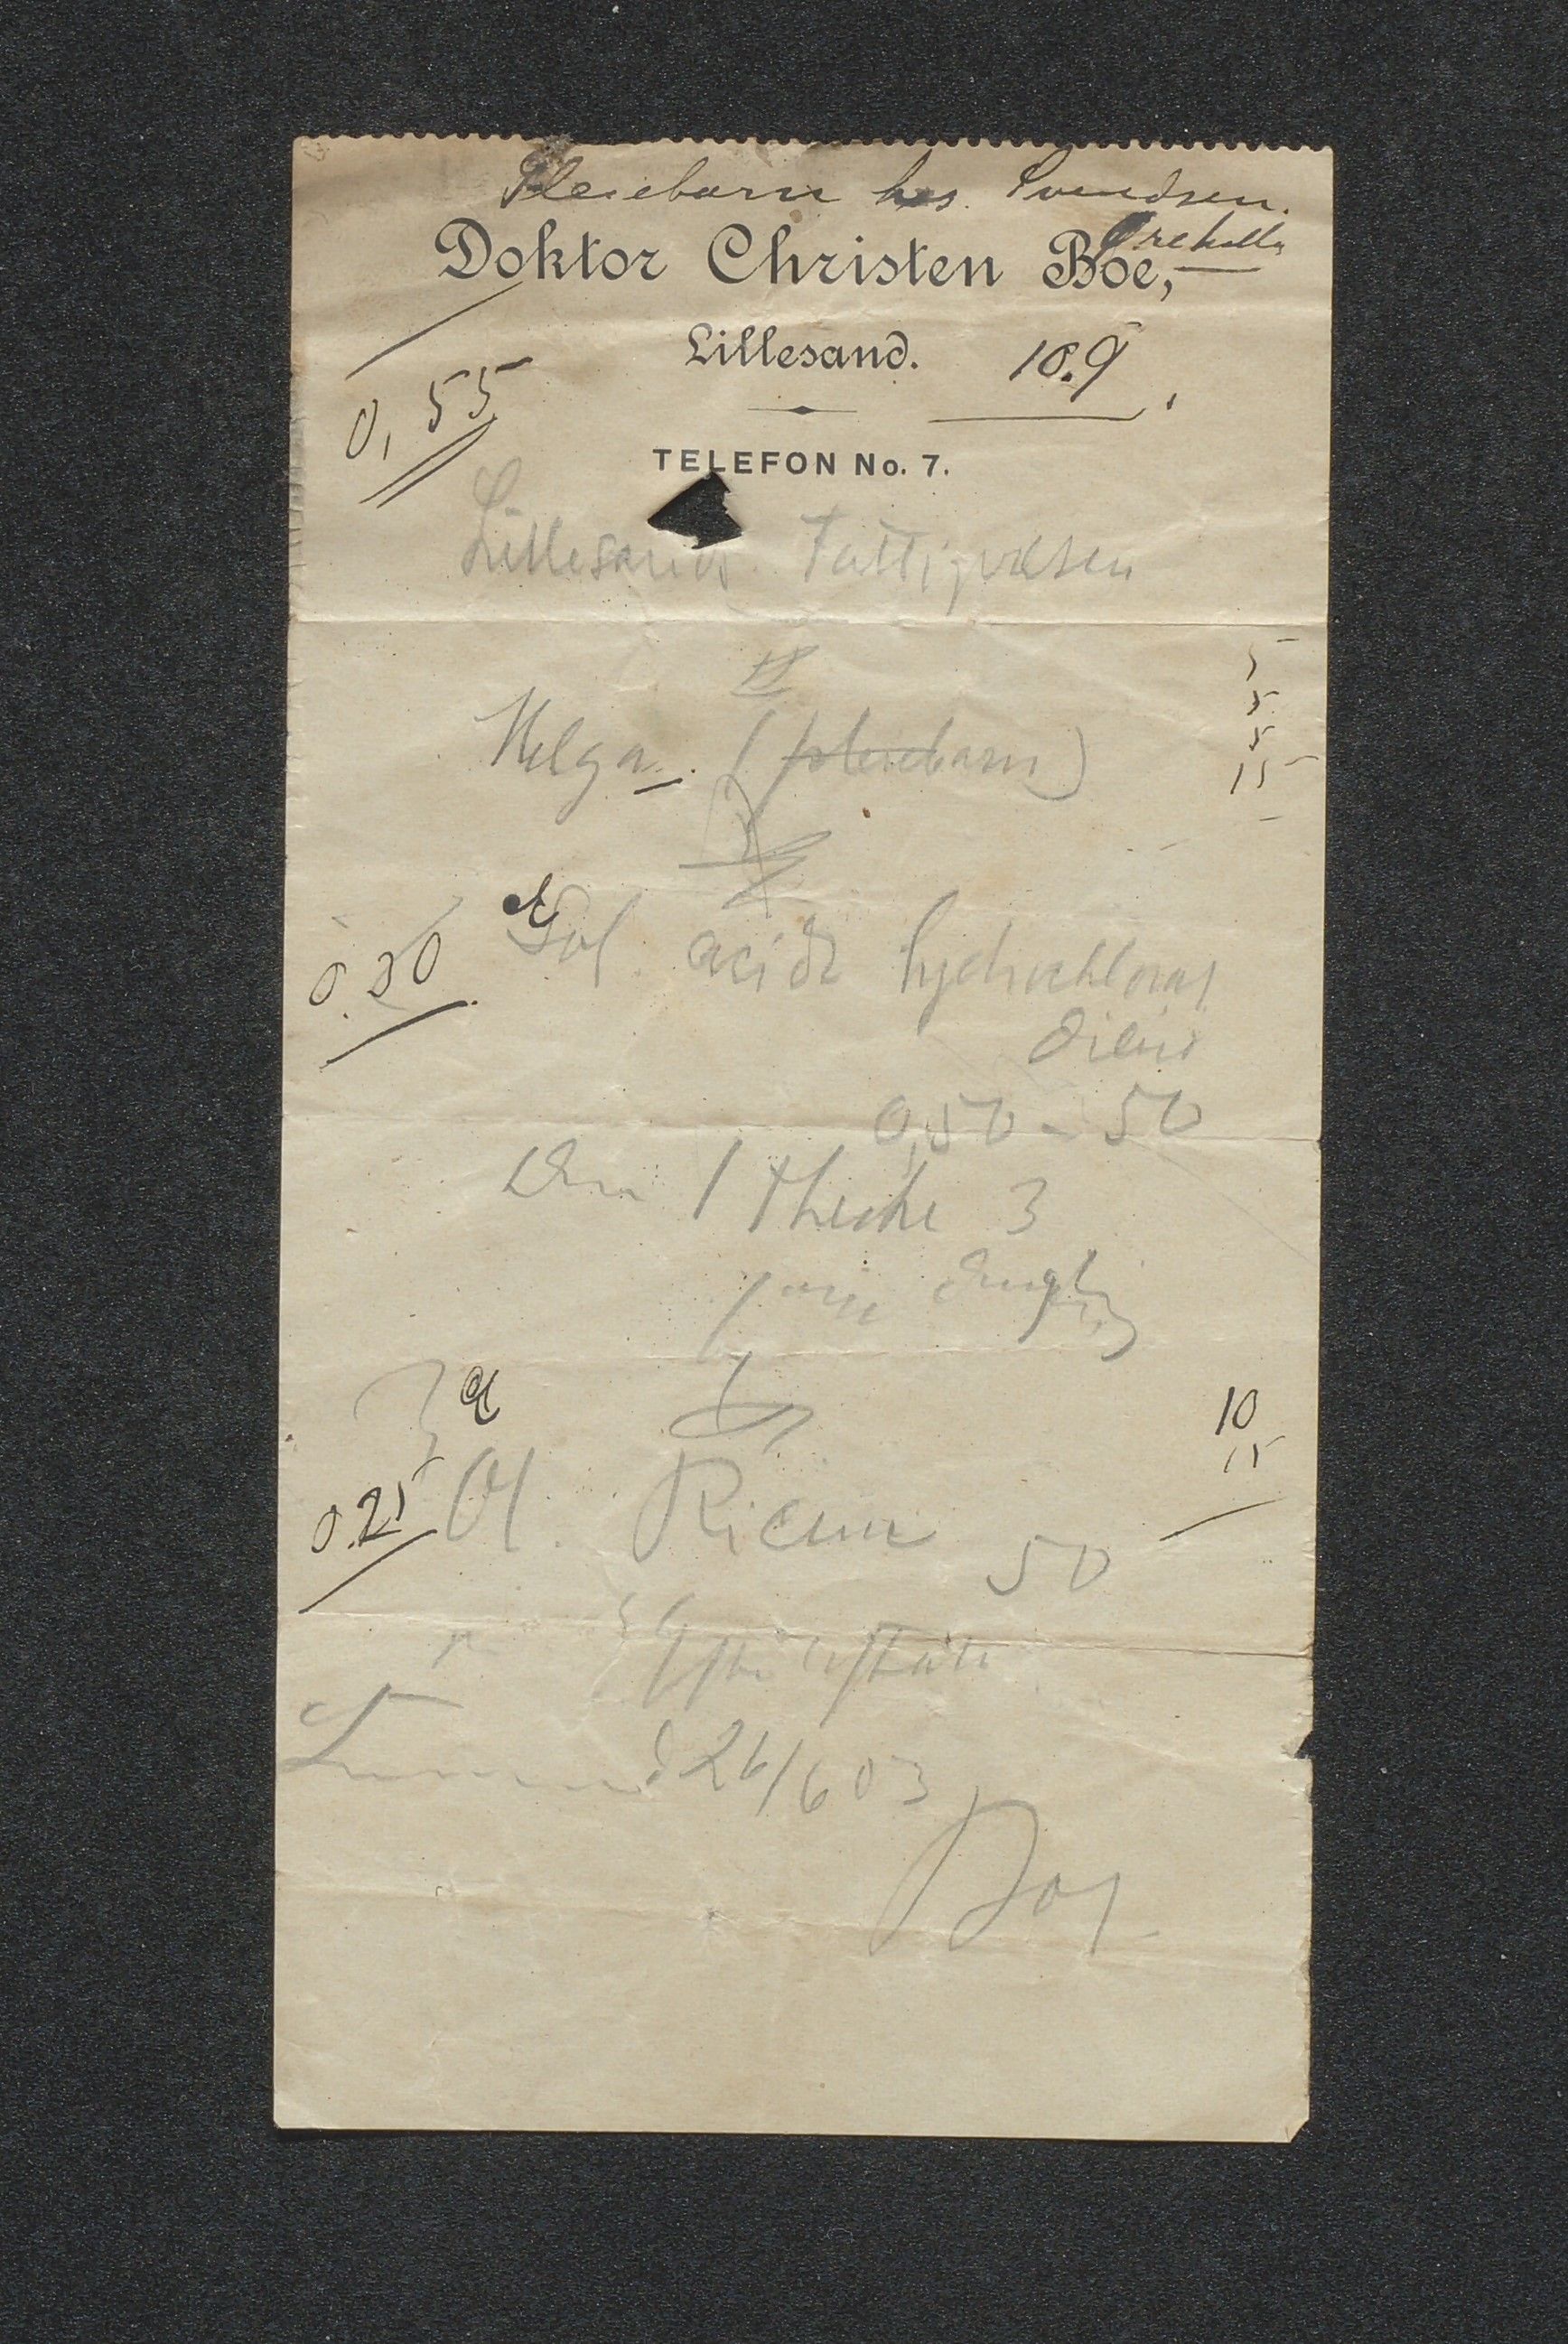 Pleiebarn hos Svendsen.
Doktor Christen Boe,
Lillesand. 10.9
0,55
TELEFON No. 7.
Lillesands Fattigvæsen
Helga. (pleiebarn)
5
5
5
15
0.30 Sol. acidi hydrochlorat
dilut
0,50 - 50
1 theske 3
daglig
10
15
0.25 Ol. Ricini
50
26/6 03
Boe